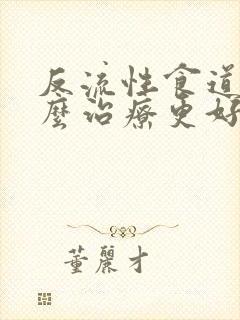 反流性食道
麼治療更好
董麗才